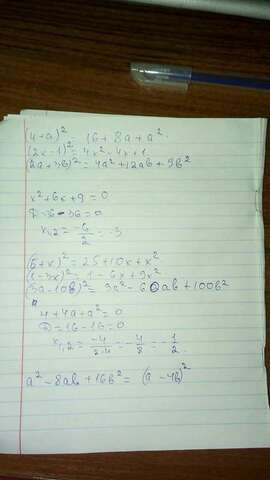 (4+a)² = 16 + 8a + a²
(2x-1)² = 4x² - 4x + 1
(2a+3b)² = 4a² + 12ab + 9b²
x² + 6x + 9 = 0
D = 36 - 36 = 0
x₁,₂ = -6/2 = -3
(5+x)² = 25 + 10x + x²
(1-3x)² = 1 - 6x + 9x²
(3a-10b)² = 9a² - 60ab + 100b²
4 + 4a + a² = 0
D = 16 - 16 = 0
x₁,₂ = -4/2·4 = -4/8 = -1/2
a² - 8ab + 16b² = (a - 4b)²